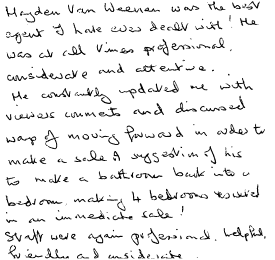 Hayden Van Weenen was the best
agent I have ever dealt with! He
was at all times professional,
considerate and attentive.
He constantly updated me with
viewers comments and discussed
ways of moving forward in order to
make a sale. A suggestion of his
to make a bathroom back into a
bedroom, making 4 bedrooms resulted
in an immediate sale!
Staff were again professional, helpful,
friendly and considerate.